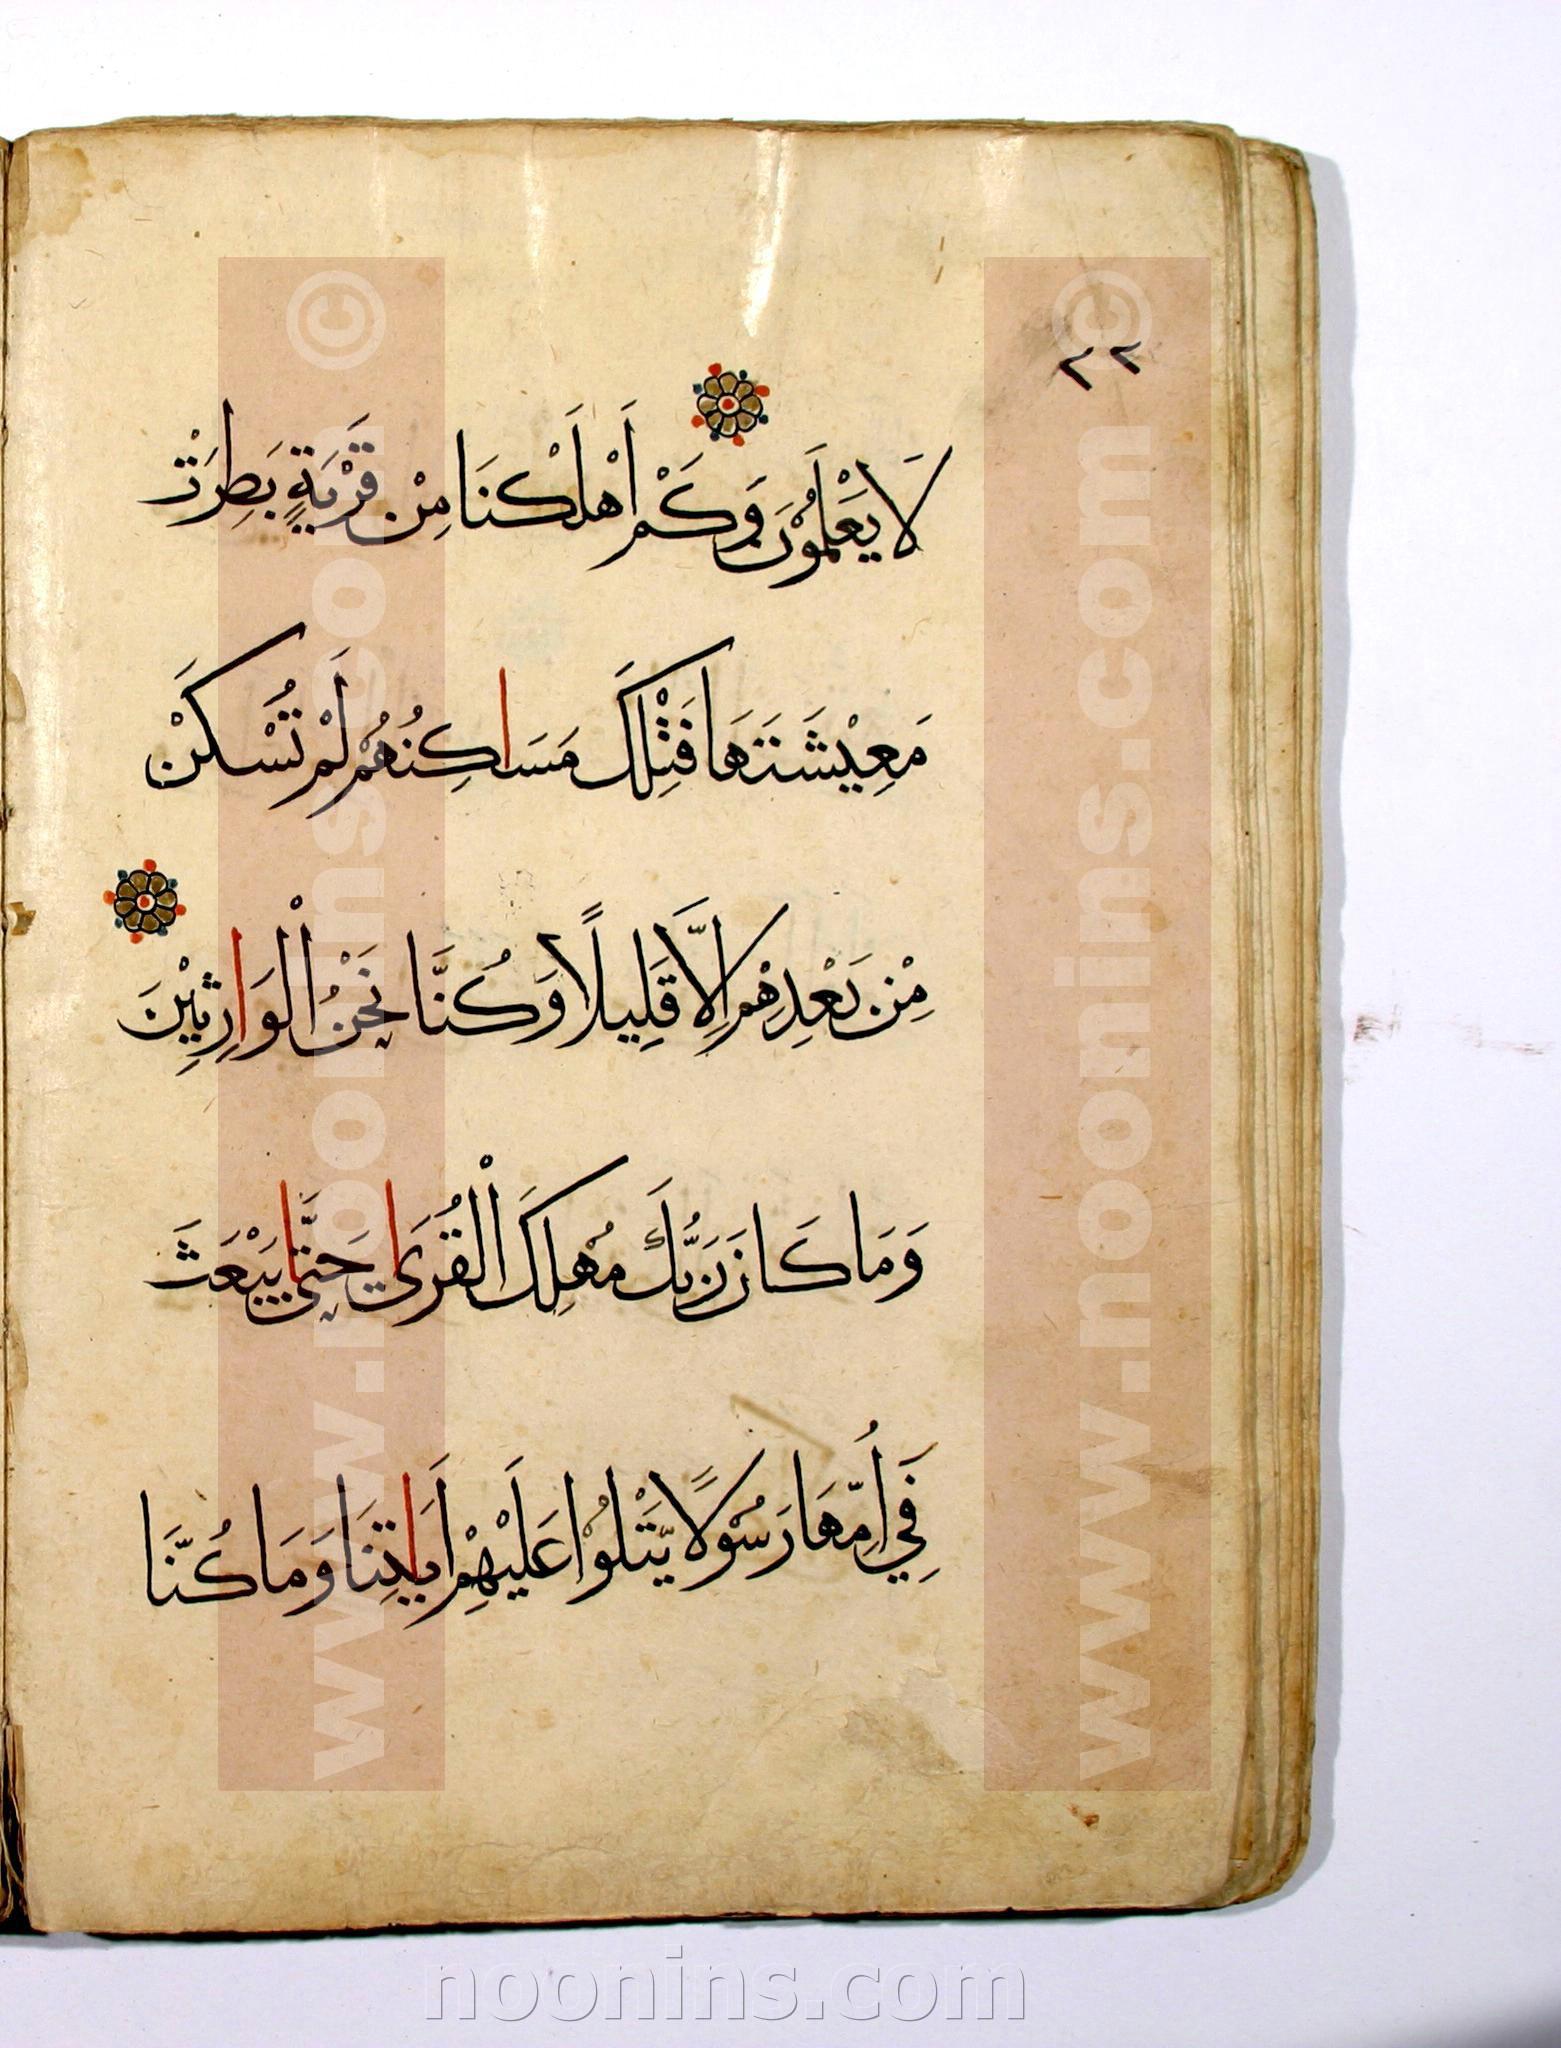 ٣٢
لَا يَعْلَمُوْنَ وَكَمْ أَهْلَكْنَا مِنْ قَرْيَةٍ بَطِرَتْ
مَعِيْشَتَهَا فَتِلْكَ مَسَاكِنُهُمْ لَمْ تُسْكَنْ
مِنْ بَعْدِهِمْ إِلَّا قَلِيلًا وَكُنَّا نَحْنُ الْوَارِثِيْنَ
وَمَا كَانَ رَبُّكَ مُهْلِكَ الْقُرَىٰ حَتَّىٰ يَبْعَثَ
فِي أُمِّهَا رَسُوْلًا يَّتْلُوْا عَلَيْهِمْ أَيَاتِنَا وَمَا كُنَّا
www.noonins.com ©
www.noonins.com ©
noonins.com